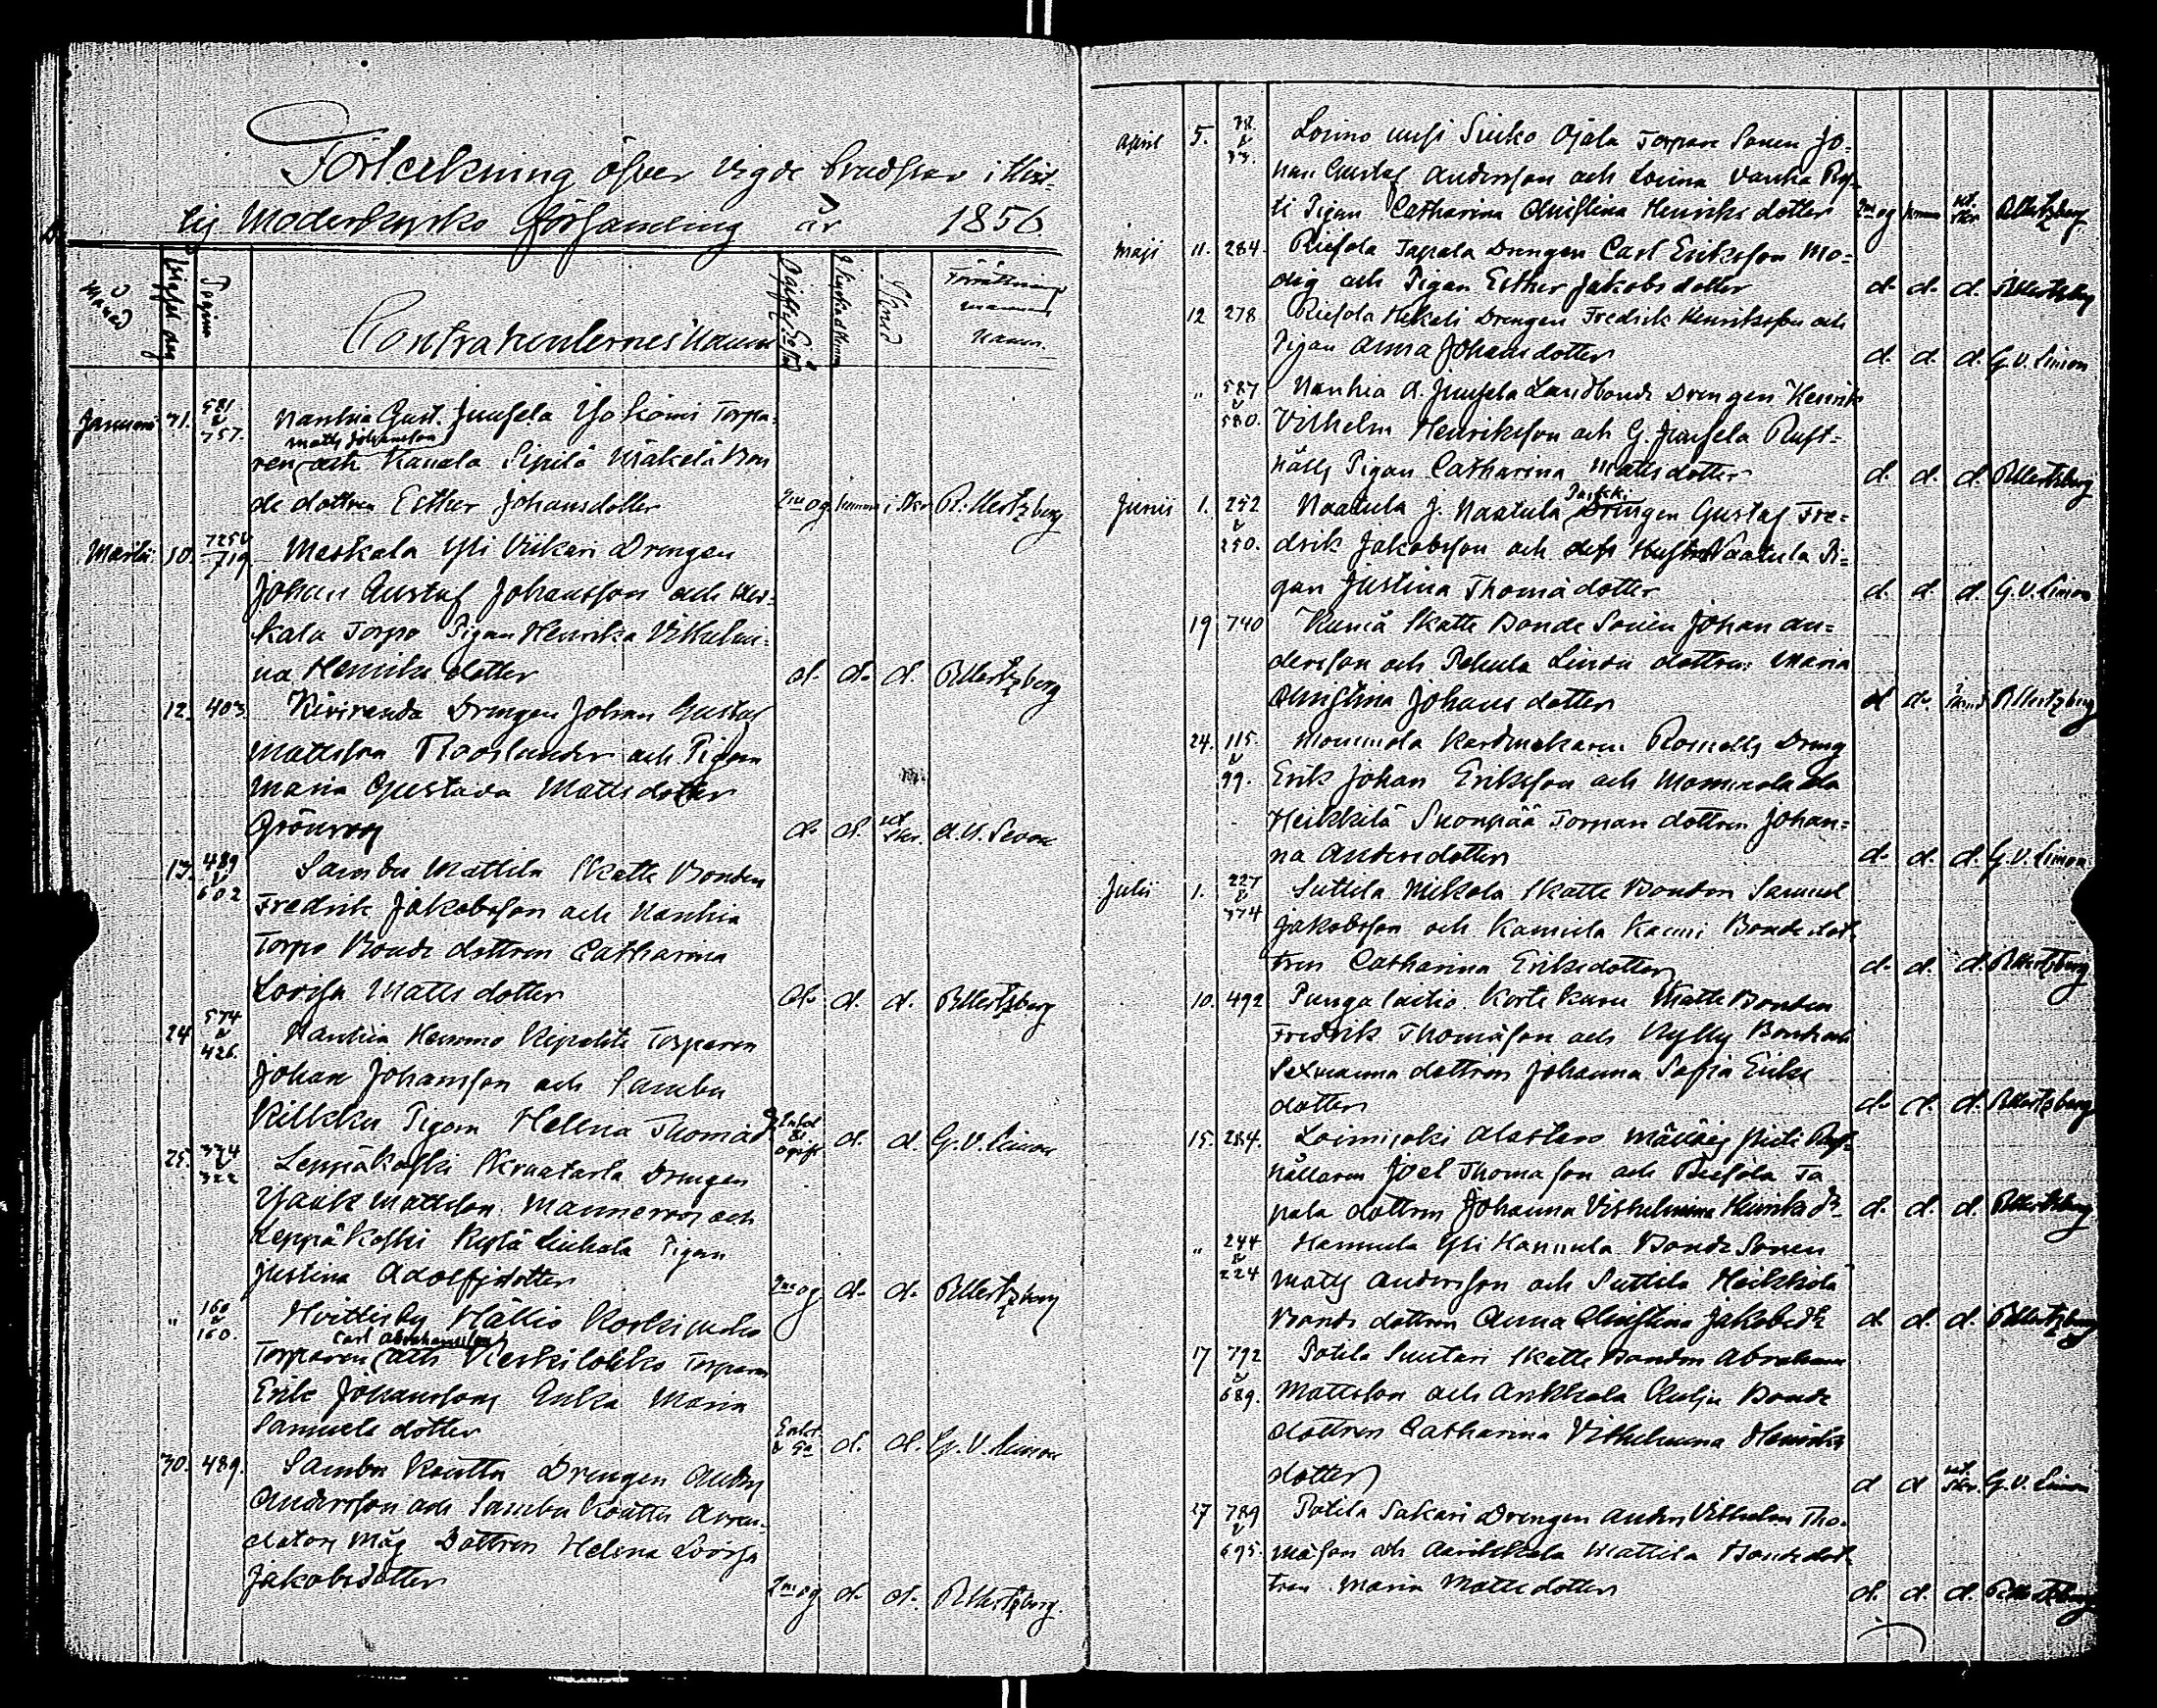 Förteckning öfver Vigde brudpar i Hvit-
tis Moderkyrko församling år 1856
Månad
Vigsel dag
Pagina
Contrahenternes Namn
Förrättnings
mannens
namn.
Januari 31. 581 & 757. Nanhia Gust. Juusela Torpa-
Matts Johansson
ren och Kauvala Sipilä Mäkelä Bon
de dottren Esther Johansdotter R. Hertzberg
Martii 10. 725 & 719 Meskala Yli Viikari Drengen
Johan Gustaf Johansson och Mes-
kala Torpo Pigan Henrika Vilhelmi-
na Henriks dotter d. d. d. R Hertzberg
12. 403. Kiviranda Drengen Johan Gustaf
Mattsson Rooslander och Pigan
Maria Gustava Matts dotter
Grönroos d. d.
13. 489 & 602 Sambu Mattila Skatte Bonden
Fredrik Jakobsson och Nanhia
Torpo Bonde dottren Catharina
Lovisa Matts dotter d. d. d. R Hertzberg
24 574 & 426. Nanhia Hemmo Torparen
Johan Johansson och Sambu
Kilkku Pigan Helena Thomæ d. d. G. V. Limon
25. 334 & 322 Leppäkoski Drengen
Isaak Mattsson Manneroos och
Leppäkoski Kylä Liuhala Pigan
Justina Adolfsdotter d. d. R Hertzberg
" 160 & 160. Hvittisby Hällio
Carl Abrahamsson
Torparen och Keskilohko Torparen
Erik Johanssons Enka Maria
Samuels dotter d. d. G. V. Limon
30. 489. Sambu Koutta Drengen Anders
Andersson och Sambu Koutta Arren-
dators Måg Dottren Helena Lovisa
Jakobsdotter d. d. R Hertzberg.
April 5. Loimo Ojala Torpare Sonen Jo-
han Gustaf Andersson och Loima Vanha
Pigan Catharina Christina Henriks dotter R Hertzberg
Maji 11. 284. Riesola Tapala Drengen Carl Eriksson Mo-
dig och Pigan Esther Jakobs dotter d. d. d. R Hertzberg
12 278 Riesola Hekali Drengen Fredrik Henriksson och
Pigan Anna Johans dotter d. d. d. G. V. Limon
" 587 & 580. Nanhia A. Juusela Landbonde Drengen Henrik
Vilhelm Henriksson och G. Juusela Rust-
hålls Pigan Catharina Matts dotter d. d. d. R Hertzberg
Junii 1. 252 & 250. Naatula J. Naatula Drengen Gustaf Fre-
drik Jakobsson och Naatula Pi-
gan Justina Thomæ dotter d. d. d. G. V. Limon
19 740 Kuniä Skatte Bonde Sonen Johan An-
dersson och Pehula dottren Maria
Christina Johans dotter d d. R Hertzberg
24. 115. & 99. Mommola Kardmakaren Dreng
Erik Johan Eriksson och Mommola Ala
Heikkilä Suonpää Torpare dottren Johan-
na Anders dotter d. d. d. G. V. Limon.
Julii 1. 227 & 374 Suttila Nikola Skatte Bonden Samuel
Jakobsson och Kamiela Kauni Bonde dot-
tren Catharina Eriksdotter d. d. d. R Hertzberg
10. 492 Pungalaitio Kortekuru Skatte Bonden
Fredrik Thomæson och
dottren Johanna Sofia Eriks
dotter d. d. d. R Hertzberg
15. 284. Loimijoki Alastaro Rust-
hållaren Joel Thomason och Riesola Ta
pala dottren Johanna Vilhelmina Henriks dr d. d. d. R Hertzberg
" 244 & 224 Hannula Yli Hannula Bonde Sonen
Matts Andersson och Suttila Heikkilä
Bonde dottren Anna Christina Jakobs dr d. d. d. R Hertzberg
17 792 & 689. Potila Suutari Skatte Bonden Abraham
Mattsson och Ankkala Bonde
dottren Catharina Vilhelmina Henriks
dotter d d G. V. Limon
27 789 & 695. Potila Sakari Drengen Anders Vilhelm Tho-
mæson och Mattila Bonde dot-
tren Maria Matts dotter d. d. d. R Hertzberg